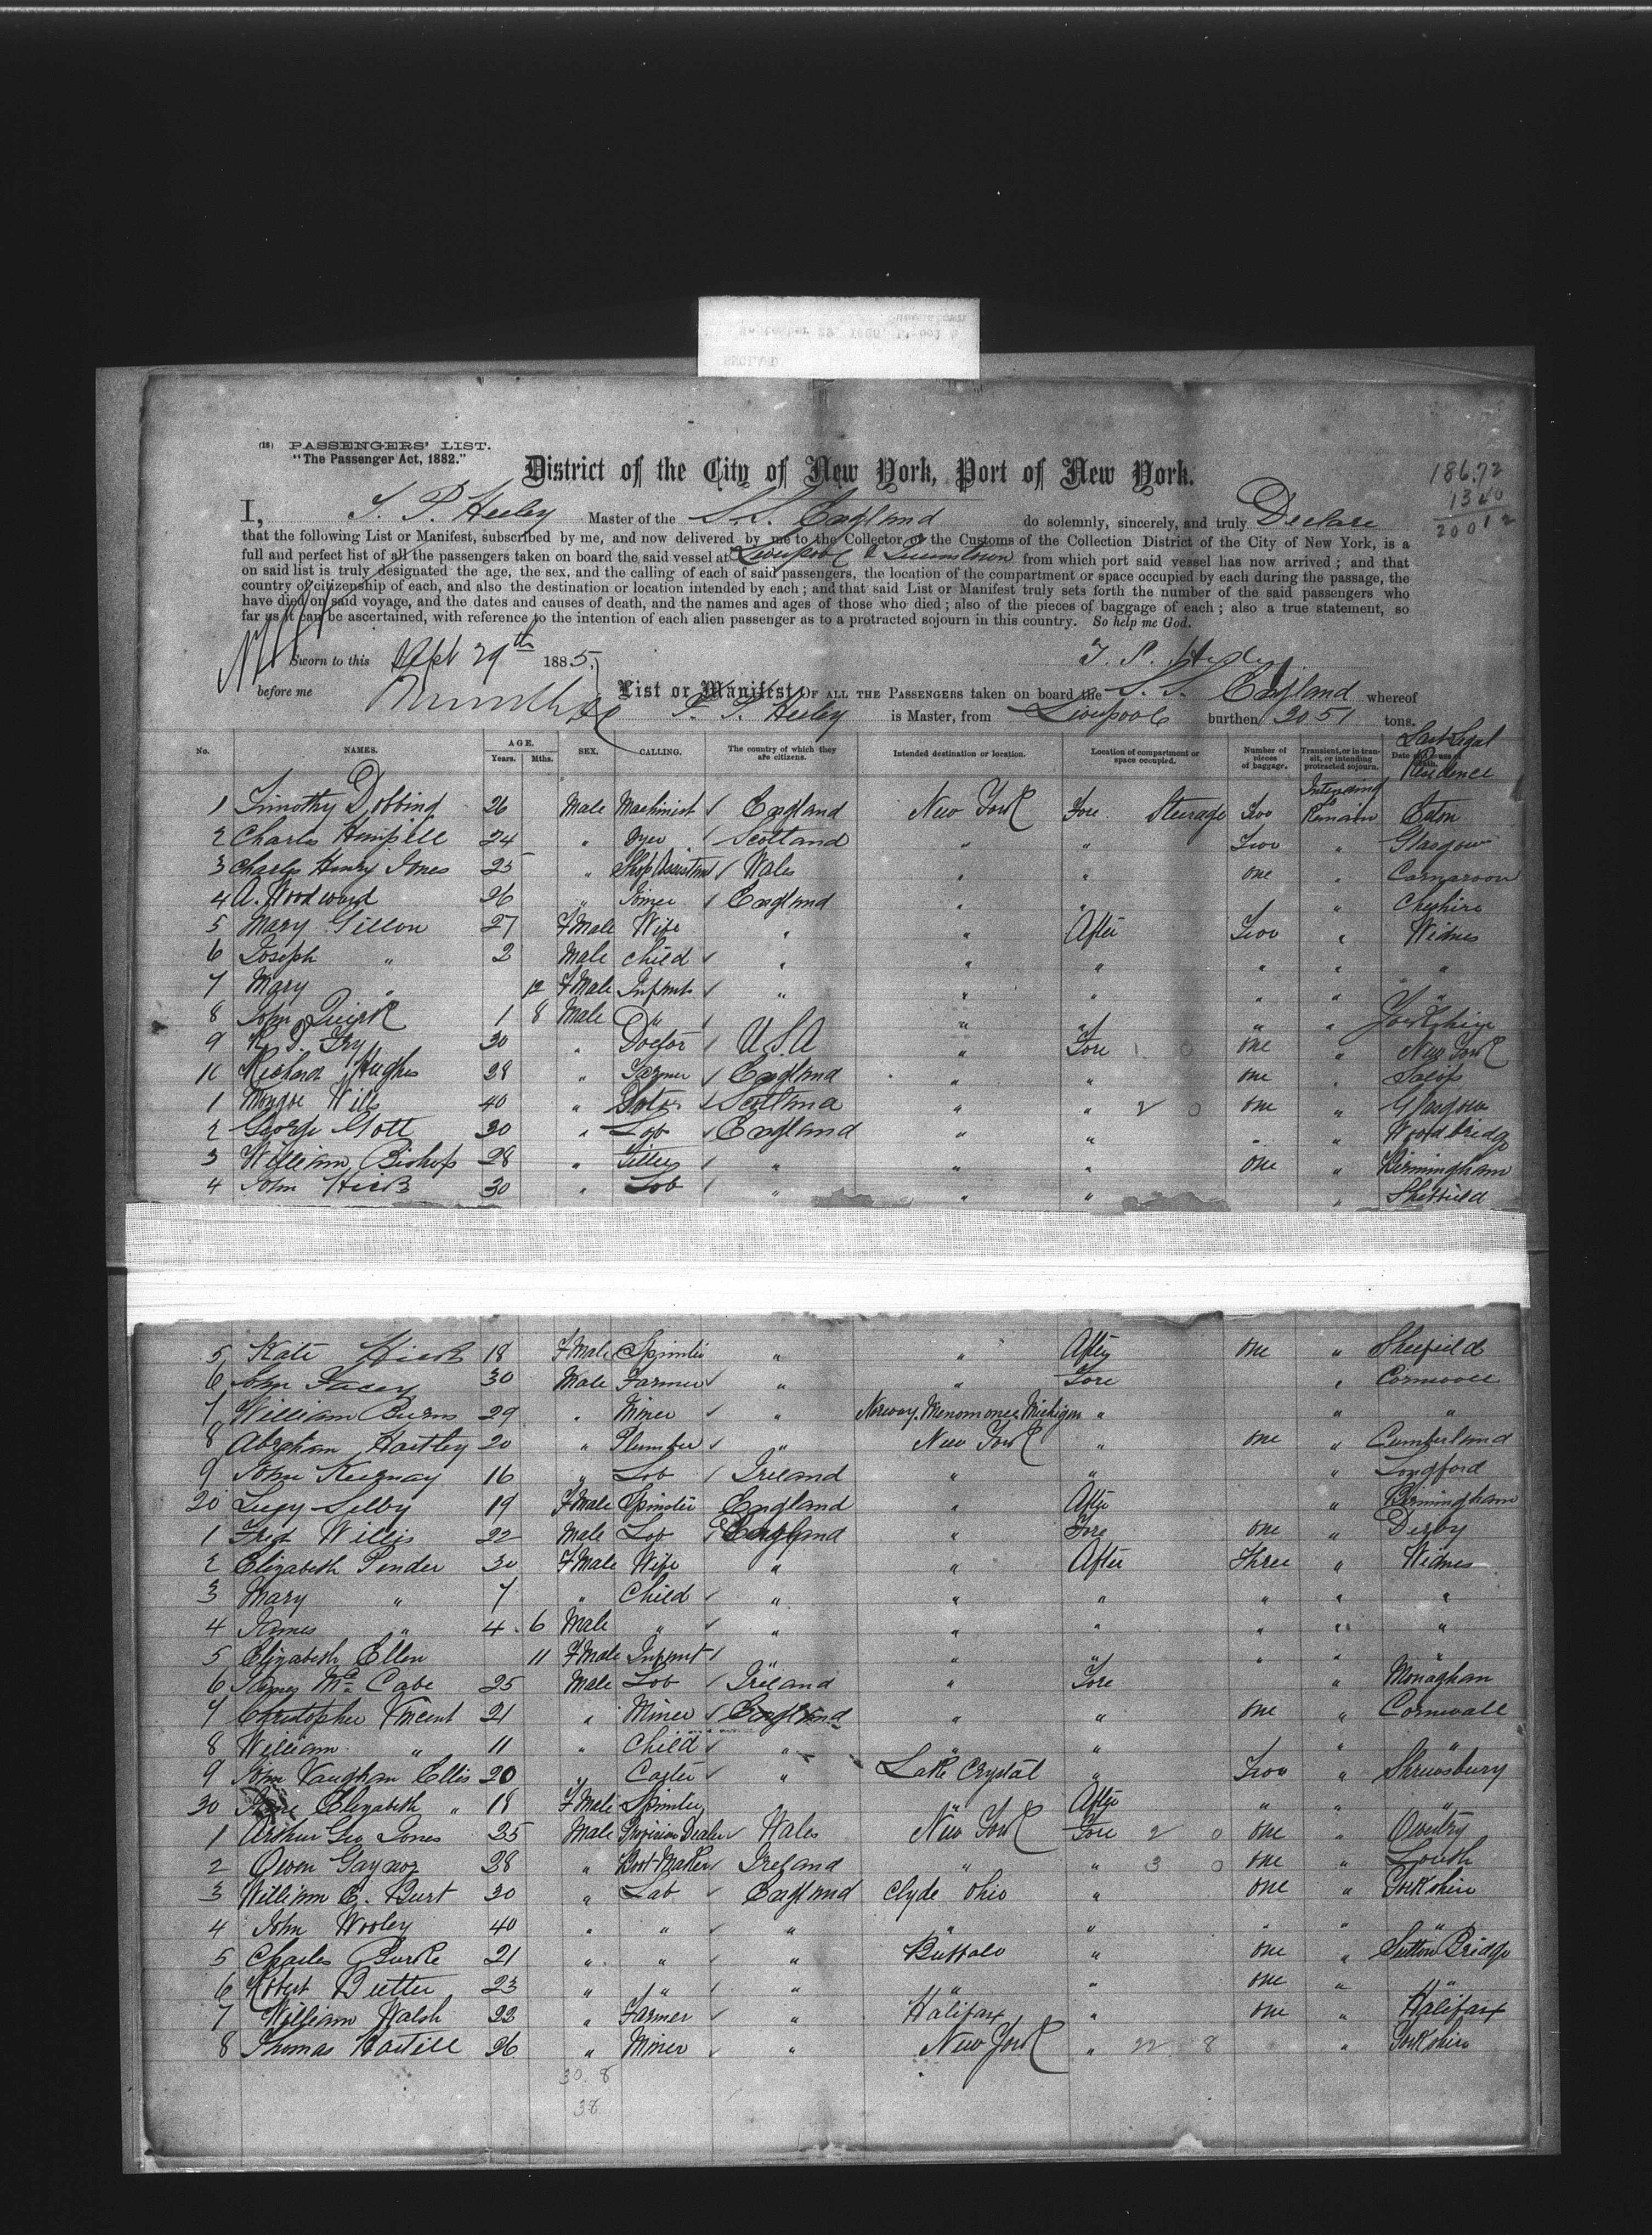 (18) PASSENGERS' LIST.
"The Passenger Act, 1882."
District of the City of New York, Port of New York.
186.72
2001 2
I, Master of the S.S. England do solemnly, sincerely, and truly Declare
that the following List or Manifest, subscribed by me, and now delivered by me to the Collector of the Customs of the Collection District of the City of New York, is a
full and perfect list of all the passengers taken on board the said vessel at Liverpool & Queenstown from which port said vessel has now arrived; and that
on said list is truly designated the age, the sex, and the calling of each of said passengers, the location of the compartment or space occupied by each during the passage, the
country of citizenship of each, and also the destination or location intended by each; and that said List or Manifest truly sets forth the number of the said passengers who
have died on said voyage, and the dates and causes of death, and the names and ages of those who died; also of the pieces of baggage of each; also a true statement, so
far as it can be ascertained, with reference to the intention of each alien passenger as to a protracted sojourn in this country. So help me God.
Sworn to this Sept 29th 1885
before me
List or Manifest OF ALL THE PASSENGERS taken on board the S.S. England whereof
is Master, from Liverpool burthen tons.
No. NAMES. AGE. Years. Mths. SEX. CALLING. The country of which they are citizens. Intended destination or location. Location of compartment or space occupied. Number of pieces of baggage. Transient, or in transit, or intending protracted sojourn. Last Legal Residence
1 Timothy Dobbing 26 Male Machinist England New York Fore Steerage Two Intending Remain
2 Charles 24 " Dyer Scotland " " Two " Glasgow
3 Charles Henry Jones 25 " Shop Assistant Wales " " one " Carnarvon
4 A. Woodward 26 " Joiner England " " " Cheshire
5 Mary Gillon 27 F Male Wife " " After Two " Widnes
6 Joseph " 2 Male Child " " " " " "
7 Mary " F Male Infant " " " " " "
8 John Quirk 1 8 Male " " " " " Yorkshire
9 30 " Doctor U.S.A " Fore one " New York
10 Richard Hughes 28 " Farmer England " " one " Salop
1 Wills 40 " Scotland " " 2 0 one " Glasgow
2 George Gott 30 " Lab England " " " " Woodbridge
3 William Bishop 28 " " " " one " Birmingham
4 John Hick 30 " Lab " " " " Sheffield
5 Kate Hick 18 F Male Spinster " " After one " Sheffield
6 John Facey 30 Male Farmer " " Fore " Cornwall
7 William Burns 29 " Miner " Norway Menomonee Michigan " " "
8 Abraham Hartley 20 " Plumber " New York " one " Cumberland
9 John Kiernay 16 " Lab Ireland " " " Longford
20 Lucy Selby 19 F Male Spinster England " After " Birmingham
1 Fred Willis 22 Male Lab England " Fore one " Derby
2 Elizabeth Pender 30 F Male Wife " " After Three " Widnes
3 Mary " 7 " Child " " " " " "
4 James " 4 6 Male " " " " " " "
5 Elizabeth Ellen 11 F Male Infant " " " " " "
6 James McCabe 25 Male Lab Ireland " Fore " Monaghan
7 Christopher Vincent 21 " Miner England " " one " Cornwall
8 William " 11 " Child " " " " "
9 John Vaughan Ellis 20 " " Lake Crystal " Two " Shrewsbury
30 Elizabeth " 18 F Male Spinster " After " " "
1 Arthur Geo Jones 25 Male Provision Dealer Wales New York Fore 2 0 one "
2 Owen Gaynor 28 " Boot Maker Ireland " " 3 0 one " Louth
3 William E. Burt 30 " Lab England Clyde Ohio " one " Yorkshire
4 John Wooley 40 " " " " " " " "
5 Charles Burke 21 " " " Buffalo " one " Sutton Bridge
6 Robert Butter 23 " " " " " one " "
7 William Walsh 22 " Farmer " Halifax " one " Halifax
8 Thomas 26 " Miner " New York " 22 8 " Yorkshire
30. 8
38